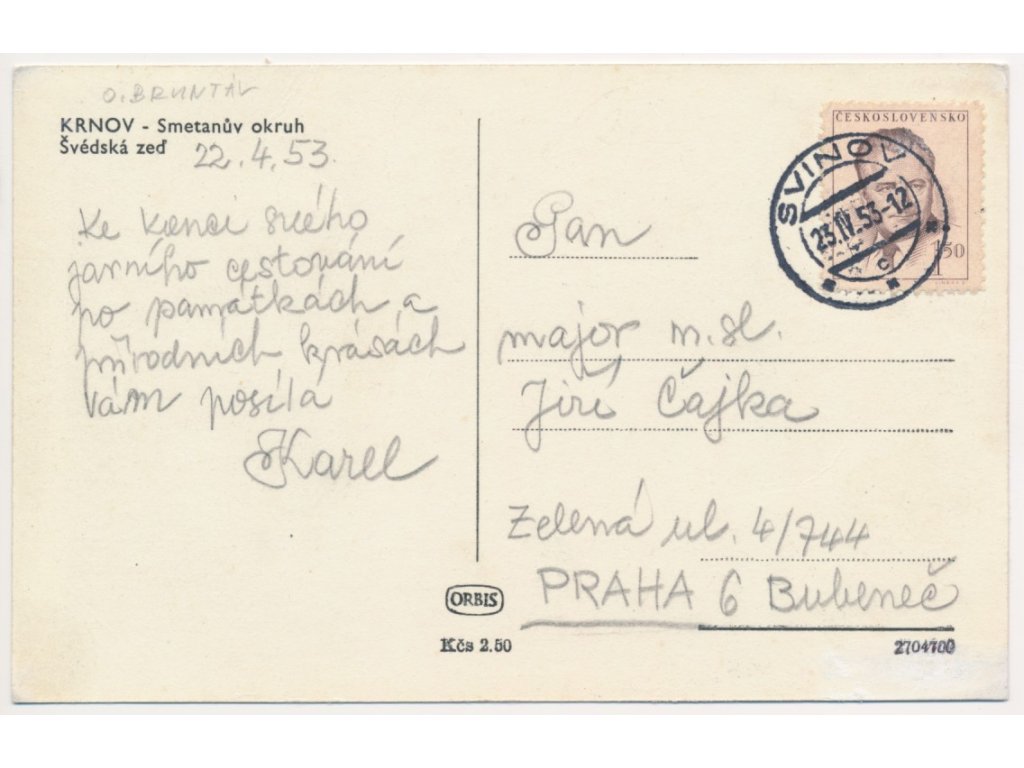 O. BRUNTÁL
KRNOV - Smetanův okruh
Švédská zeď
22.4.53.
Ke konci svého
jarního cestování
po památkách a
přírodních krásách
vám posílá
Karel
ČESKOSLOVENSKO
1,50
SVINOV
23.IV.53-12
c
Pan
major m.sl.
Jiří Čajka
Zelená ul. 4/744
PRAHA 6 Bubeneč
ORBIS
Kčs 2.50